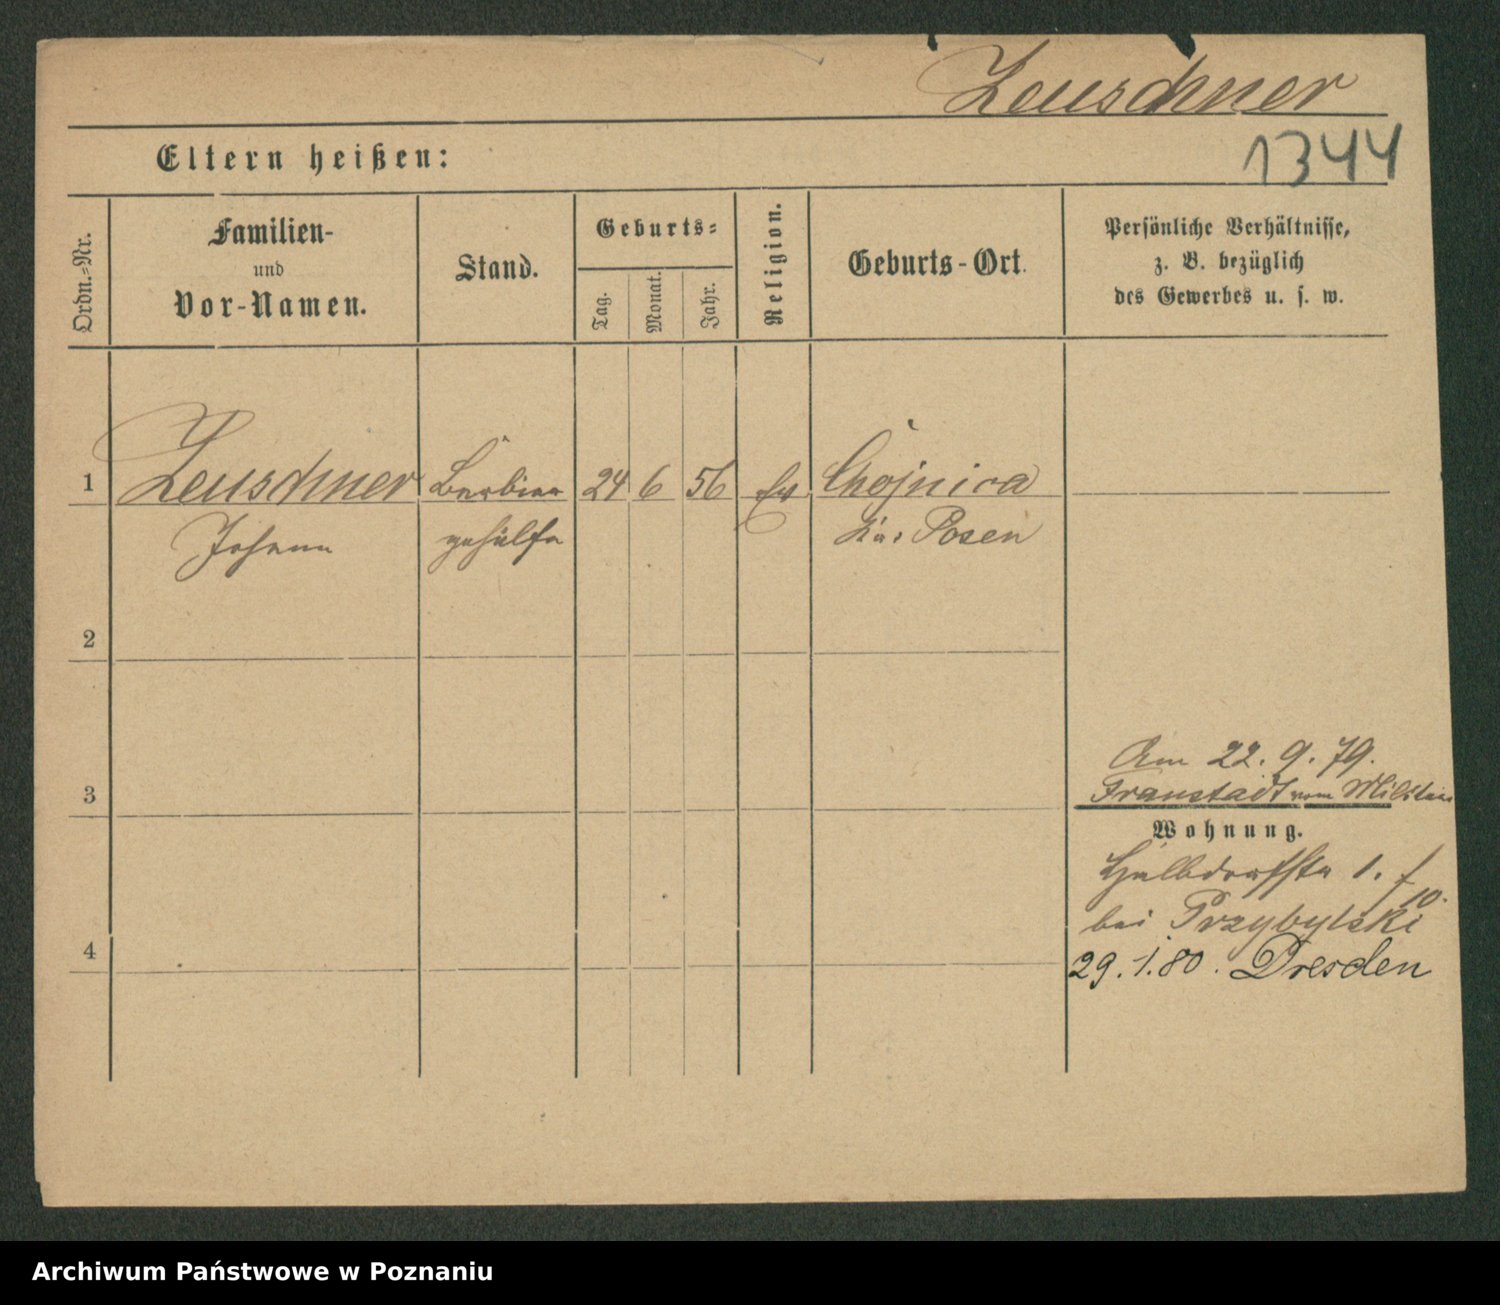 Zeuschner
1344
Eltern heißen:
Ordn.=Nr.
Familien-
und
Vor-Namen.
Stand.
Geburts=
Tag.
Monat.
Jahr.
Religion.
Geburts-Ort.
Persönliche Verhältnisse,
z. B. bezüglich
des Gewerbes u. s. w.
1 Zeuschner Barbier 24 6 56 Chojnica
Johann gehülfe Posen
2
3
Am 22. 9. 79.
Fraustadt vom Militair
Wohnung.
Halbdorfstr 1. f
10.
bei Przybylski
4
29. 1. 80. Dresden
Archiwum Państwowe w Poznaniu